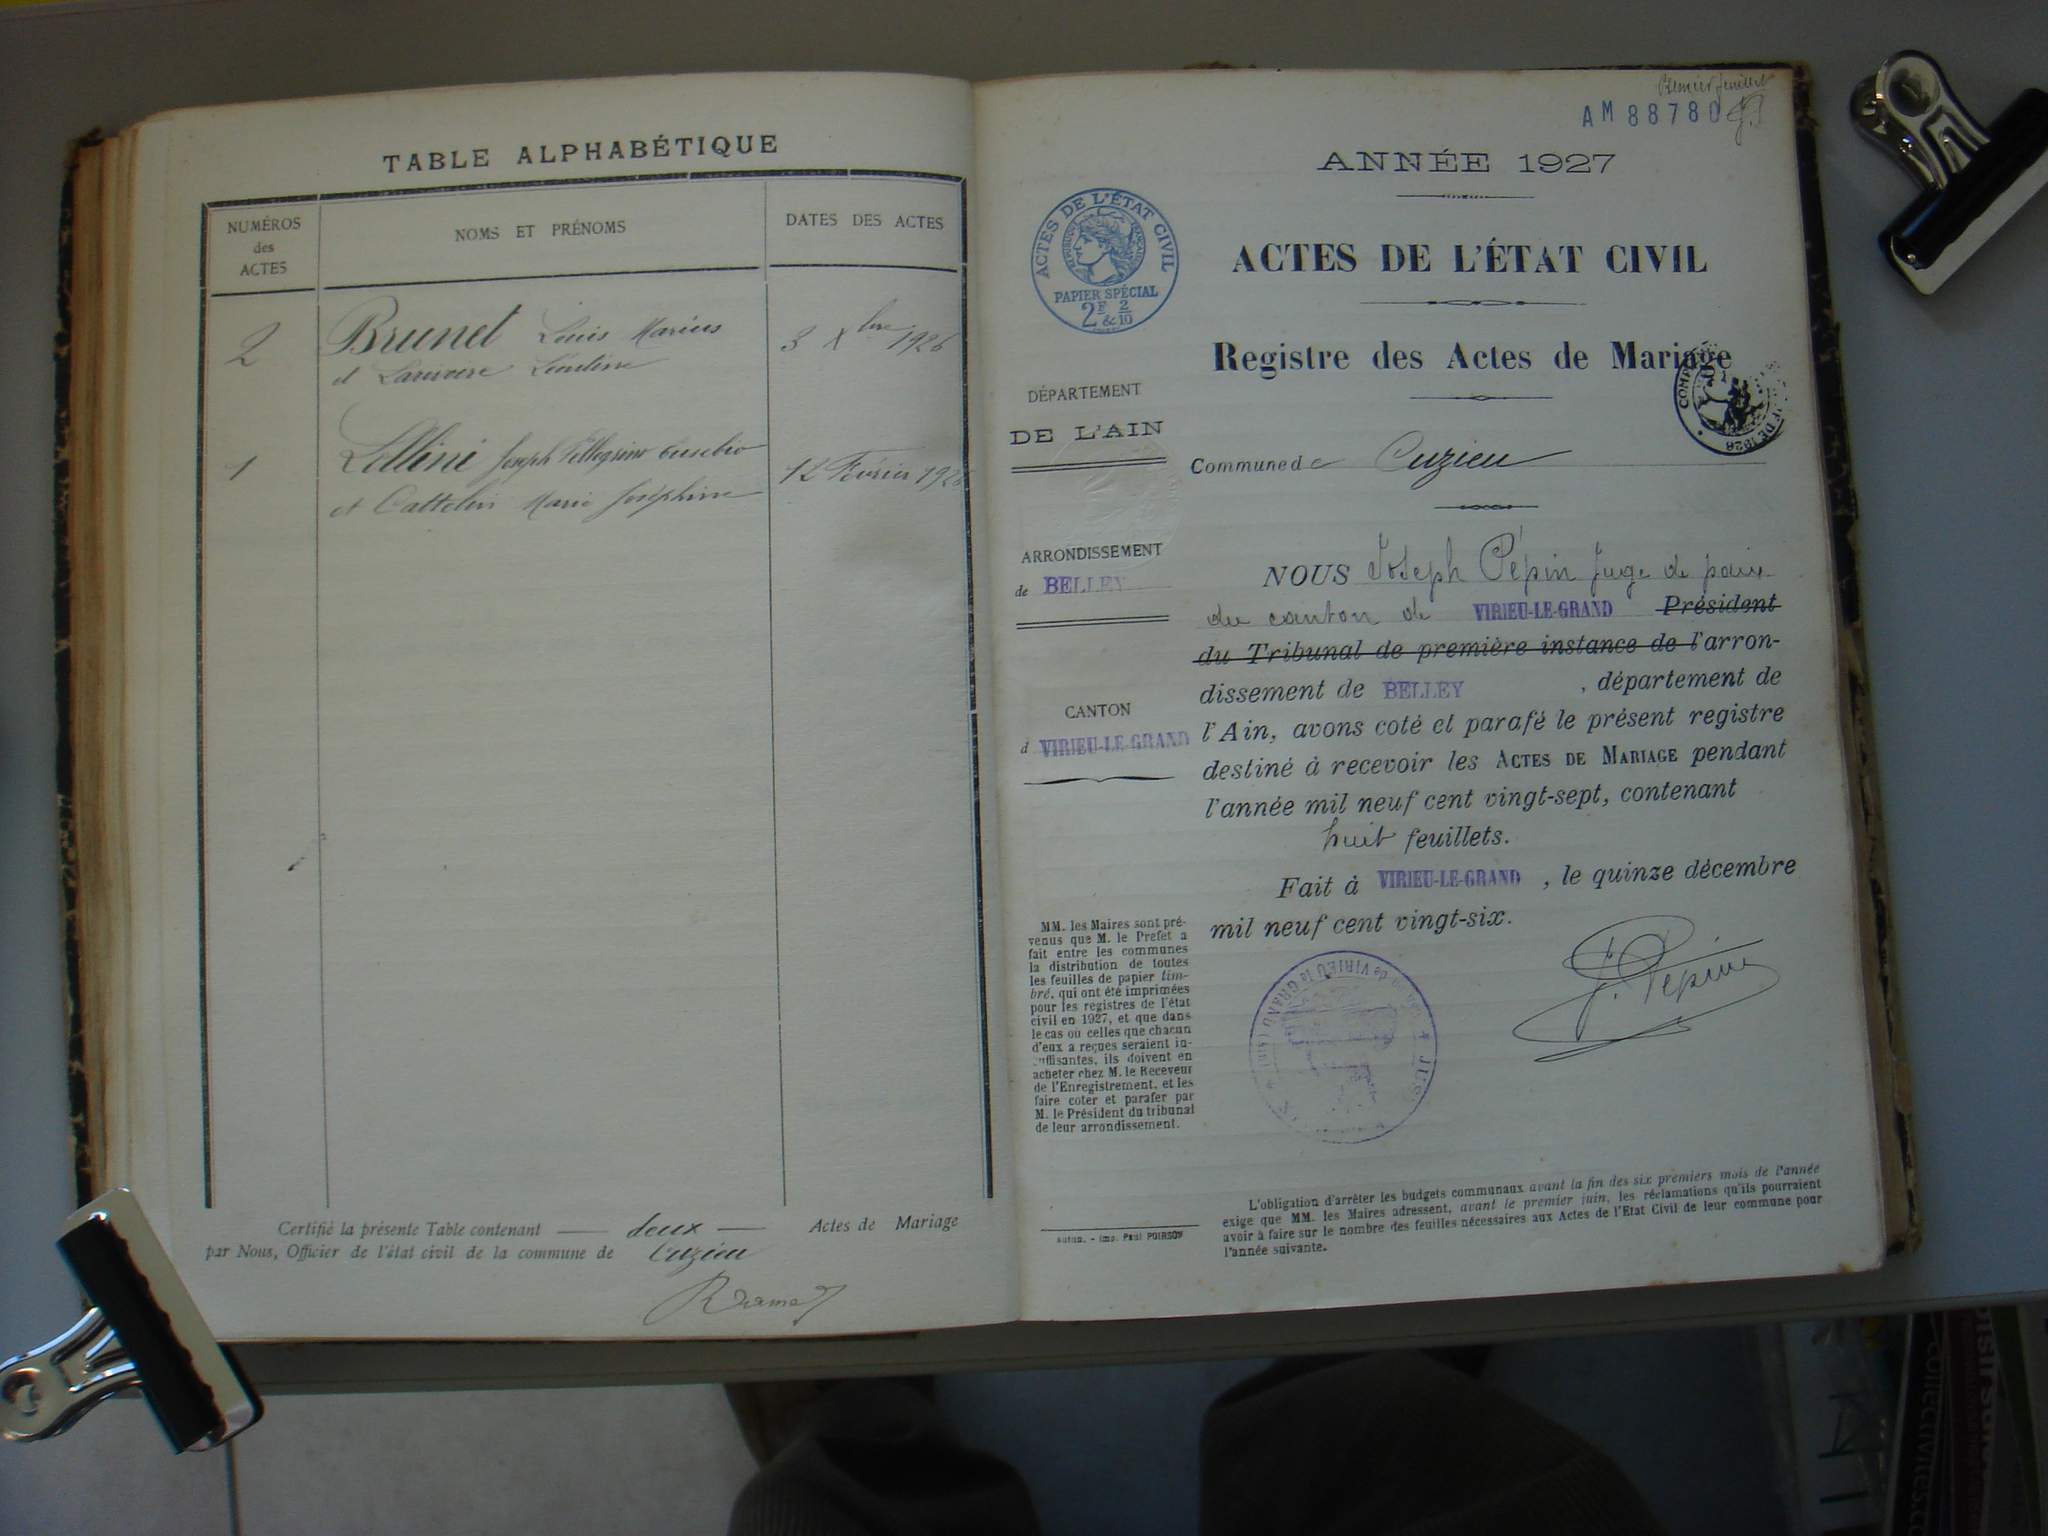 TABLE ALPHABÉTIQUE
NUMÉROS
des
ACTES
NOMS ET PRÉNOMS
DATES DES ACTES
2
Brunet Louis Marius
et
3 Xbre 1926
1
Joseph Pellegrino Eusebio
et Cattelin Marie Joséphine
12 Février 1926
Certifié la présente Table contenant deux Actes de Mariage
par Nous, Officier de l'état civil de la commune de Cuzieu
Premier feuillet
AM 88780
ANNÉE 1927
ACTES DE L'ÉTAT CIVIL
RÉPUBLIQUE FRANÇAISE
PAPIER SPÉCIAL
2F & 2/10
ACTES DE L'ÉTAT CIVIL
Registre des Actes de Mariage
DE 1926
DÉPARTEMENT
DE L'AIN
Commune de Cuzieu
ARRONDISSEMENT
de BELLEY
CANTON
d VIRIEU-LE-GRAND
NOUS Joseph Pépin Juge de paix
du canton de VIRIEU-LE-GRAND Président
du Tribunal de première instance de l'arron-
dissement de BELLEY , département de
l'Ain, avons coté et parafé le présent registre
destiné à recevoir les ACTES DE MARIAGE pendant
l'année mil neuf cent vingt-sept, contenant
huit feuillets.
Fait à VIRIEU-LE-GRAND , le quinze décembre
mil neuf cent vingt-six.
J. Pépin
de VIRIEU le GRAND (Ain)
MM. les Maires sont pré-
venus que M. le Préfet a
fait entre les communes
la distribution de toutes
les feuilles de papier tim-
bré, qui ont été imprimées
pour les registres de l'état
civil en 1927, et que dans
le cas où celles que chacun
d'eux a reçues seraient in-
suffisantes, ils doivent en
acheter chez M. le Receveur
de l'Enregistrement, et les
faire coter et parafer par
M. le Président du tribunal
de leur arrondissement.
Autun. - Imp. Paul POIRSON
L'obligation d'arrêter les budgets communaux avant la fin des six premiers mois de l'année
exige que MM. les Maires adressent, avant le premier juin, les réclamations qu'ils pourraient
avoir à faire sur le nombre des feuilles nécessaires aux Actes de l'Etat Civil de leur commune pour
l'année suivante.